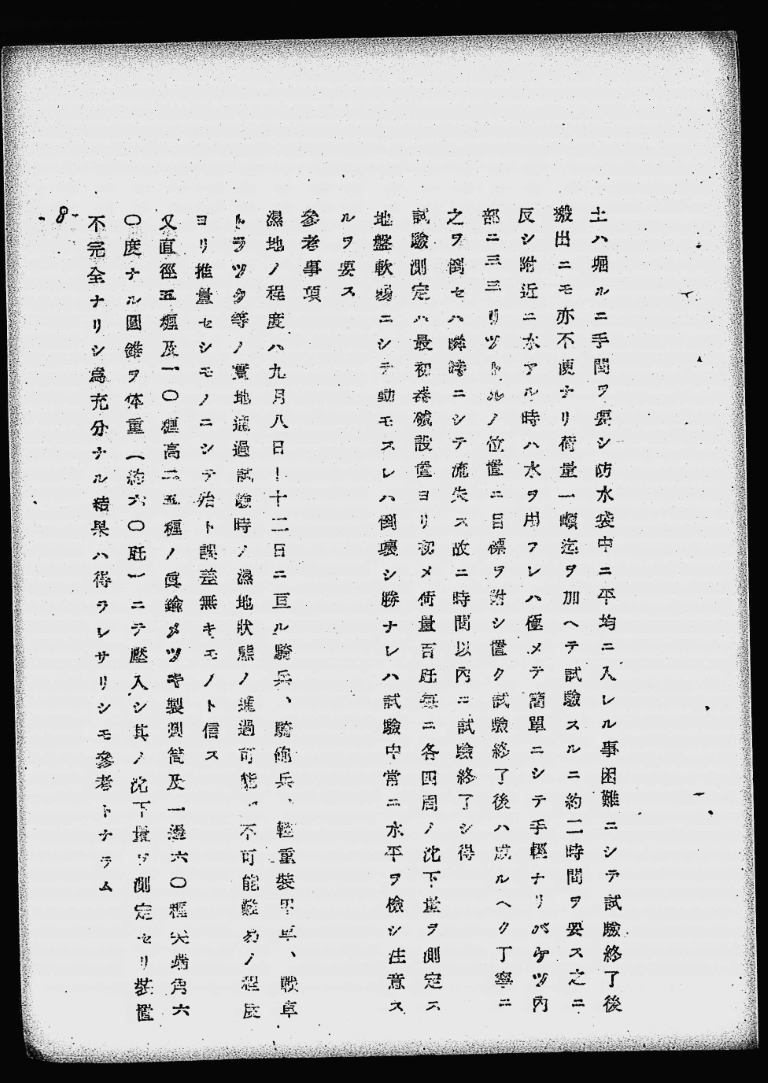 土ハ堀ルニ手間ヲ要シ防水袋中ニ平均ニ入レル事困難ニシテ試驗終了後
搬出ニモ亦不便ナリ荷量一噸迄ヲ加ヘテ試驗スルニ約二時間ヲ要ス之ニ
反シ附近ニ水アル時ハ水ヲ用フレハ極メテ簡單ニシテ手輕ナリバケツ內
部ニ三三リツトルノ位置ニ目標ヲ附シ置ク試驗終了後ハ成ルヘク丁寧ニ
之ヲ倒セハ瞬時ニシテ流失ス故ニ時間以內ニ試驗終了シ得
試驗測定ハ最初器械設置ヨリ初メ荷量百瓩每ニ各四周ノ沈下量ヲ測定ス
地盤軟弱ニシテ動モスレハ倒壞シ勝ナレハ試驗中常ニ水平ヲ檢シ注意ス
ルヲ要ス
參考事項
濕地ノ程度ハ九月八日ー十二日ニ亘ル騎兵、騎砲兵、輕重裝甲車、戰車
トラツク等ノ實地通過試驗時ノ濕地狀態ノ通過可能、不可能難易ノ程度
ヨリ推量セシモノニシテ殆ト誤差無キモノト信ス
又直徑五糎及一〇糎高二五糎ノ眞鍮メツキ製測筒及一邊六〇糎尖端角六
〇度ナル圓錐ヲ体重(約六〇瓩)ニテ壓入シ其ノ沈下量ヲ測定セリ裝置
不完全ナリシ爲充分ナル結果ハ得ラレサリシモ參考トナラム
-8-